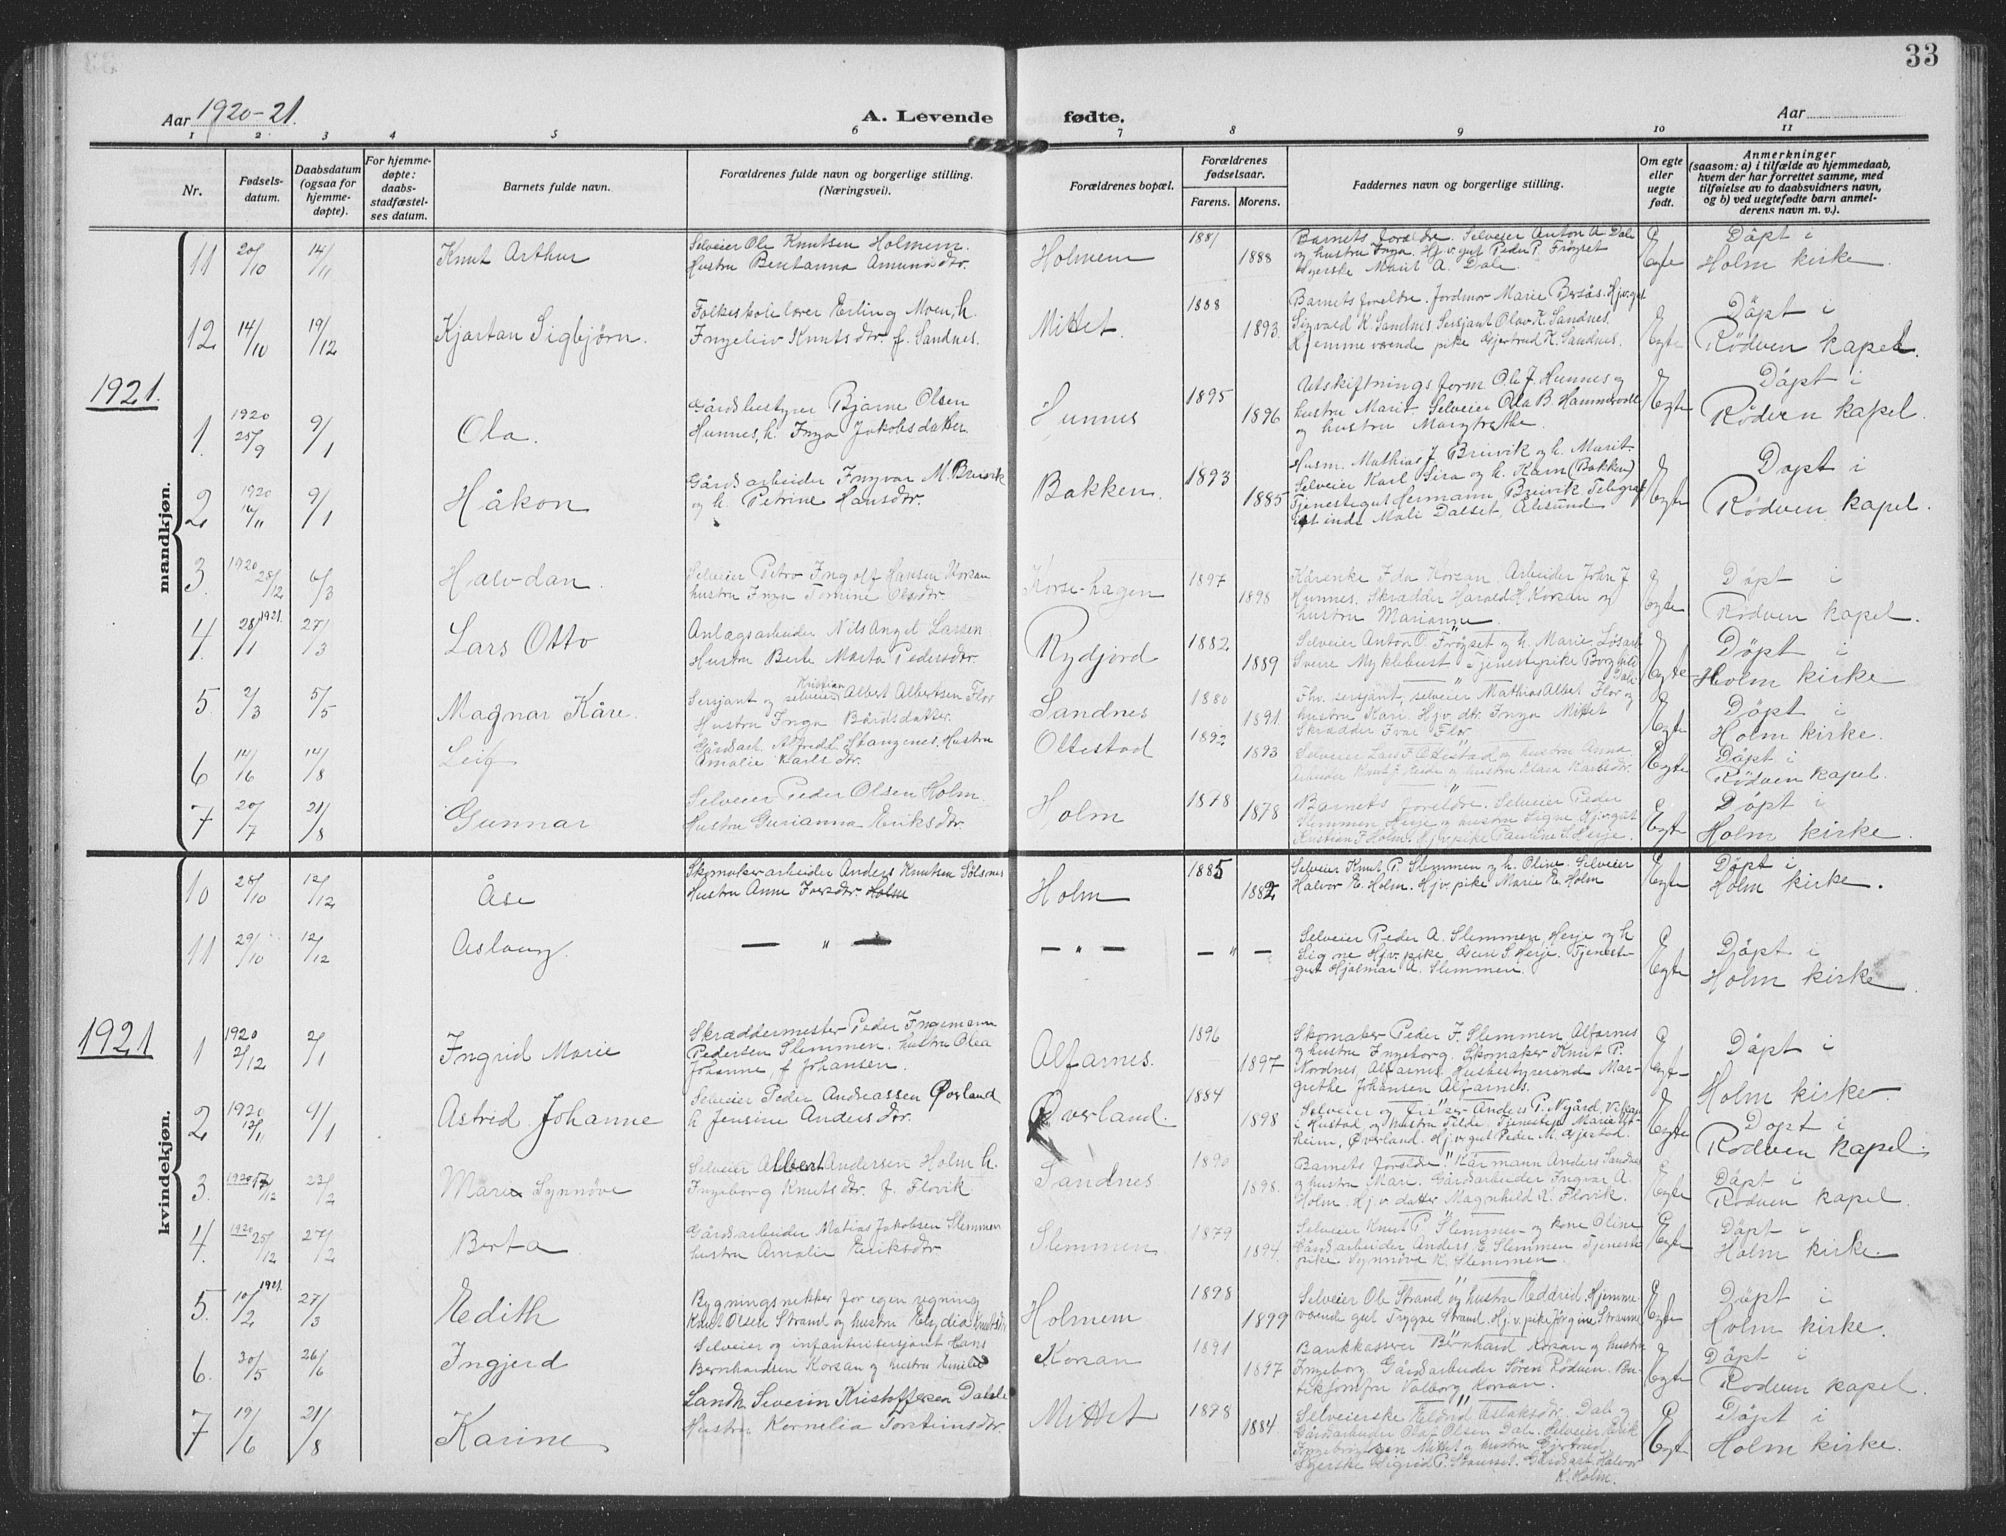 33
Aar 1920-21.
A. Levende fødte.
Aar
1 2 3 4 5 6 7 8 9 10 11
Nr.
Fødsels-
datum.
Daabsdatum
(ogsaa for
hjemme-
døpte).
For hjemme-
døpte:
daabs-
stadfæstel-
ses datum.
Barnets fulde navn.
Forældrenes fulde navn og borgerlige stilling.
(Næringsvei).
Forældrenes bopæl.
Forældrenes
fødselsaar.
Farens. Morens.
Faddernes navn og borgerlige stilling.
Om egte
eller
uegte
født.
Anmerkninger
(saasom: a) i tilfælde av hjemmedaab,
hvem der har forrettet samme, med
tilføielse av to daabsvidners navn,
og b) ved uegtefødte barn anmel-
derens navn m. v.).
mandkjøn.
11 20/10 14/11 Knut Arthur
Selveier Ole Knutsen Holmem.
Hustru Bentanna Amundsdtr.
Holmem 1881 1888
Barnets forældre. Selveier Anton A. Dale
og hustru Inga. Hj.v. gut Peder P. Frøyset
Syerske Marit A. Dale.
Egte
Døpt i
Holm kirke.
12 14/10 19/12 Kjartan Sigbjørn.
Folkeskolelærer Erling Moen, h.
Ingeleiv Knutsdtr. f. Sandnes.
Mittet. 1888 1893
Barnets foreldre. Jordmor Marie Bersås. Hjv. gut
Sigvald K. Sandnes, Sersjant Olav K. Sandnes,
Hjemmeværende pike Gjertrud K. Sandnes.
Egte
Døpt i
Rödven kapel.
1921.
1. 1920 25/9 9/1 Ola.
Gårdsbestyrer Bjarne Olsen
Hunnes, h. Inga Jakobsdatter
Hunnes 1895 1896
Utskiftningsform. Ole J. Hunnes og
hustru Marit. Selveier Ola B. Hammervold
og hustru Margrethe.
Egte
Døpt i
Rödven kapel.
2 1920 14/11 9/1 Håkon
Gårdsarbeider Ingvar M. Breivik
og h. Petrine Hansdtr.
Bakken. 1893 1885
Husm. Mathias J. Breivik og h. Marit.
Selveier Karl Sira og h. Karn (Bakken)
Tjenestegut Hermann Breivik. Telegraf
Mali Dalset, Ålesund
Egte
Døpt i
Rødven kapel.
3. 1920 28/12 6/3 Halvdan.
Selveier Petro Ingolf Hansen Korsan
hustru Inga Tomine Olsdtr.
Korsehagen 1897 1898
Ida Korsan. Arbeider John J.
Hunnes. Skrædder Harald H. Korsan og
hustru Marianne.
Egte
Døpt i
Rødven kapel.
4. 28/1 1921. 27/3 Lars Otto
Anlægsarbeider Nils Anget Larsen
Hustru Berte Marta Pedersdtr.
Rydjord 1882 1889
Selveier Anton O. Frøyset og h. Marie. Løsarb
Sverre Myklebust. Tjenestepike Borghild
Dale
Egte
Døpt i
Holm kirke
5. 2/3 5/5 Magnar Kåre.
Sersjant og selveier Kristian Albert Albertsen Flor
Hustru Inga Bårdsdatter.
Sandnes 1880 1891
Fhv. sersjant, selveier Mathias Albert Flor og
hustru Kari. Hjv. dtr. Inga Mittet
Skrædder Ivar Flor
Egte
Døpt i
Holm kirke.
6 14/6 14/8 Leif
Gårdsarb. Alfred L. Stangenes. Hustru
Amalie Karlsdtr.
Ottestad 1892 1893
Selveier Lars F. Ottestad og hustru Anna
Arbeider Knut J. Reide og hustru Klara Karlsdtr.
Egte
Døpt i
Rødven kapel.
7 20/7 21/8 Gunnar
Selveier Peder Olsen Holm.
Hustru Gurianna Eriksdtr.
Holm 1878 1878
Barnets foreldre. Selveier Peder
Slemmen Herje og hustru Signe. Hjv. gut
Kristian F. Holm. Hjv. pike Pauline S. Herje.
Egte
Døpt i
Holm kirke.
kvindekjøn.
10 28/10 12/12 Åse
Skomakerarbeider Anders Knutsen Sølsnes
Hustru Anne Iversdtr. Holm
Holm 1885 1882
Selveier Knut P. Slemmen og h. Oline. Selveier
Halvor E. Holm. Hjv. pike Marie E. Holm
Egte
Døpt i
Holm kirke.
11 29/10 12/12 Aslaug.
— " — — " — — " —
Selveier Peder A. Slemmen, Herje og h
Signe Hjv. pike S. Herje. Tjeneste-
gut Hjalmar A. Slemmen.
Egte
Døpt i
Holm kirke.
1921
1 1920 2/12 2/1 Ingrid Marie
Skræddermester Peder Ingemann
Pedersen Slemmen. hustru Olea
Johanne, f. Johansen.
Alfarnes. 1896 1897
Skomaker Peder F. Slemmen, Alfarnes
og hustru Ingeborg. Skomaker Knut P.
Nordnes, Alfarnes. Husbestyrerinde Mar-
grethe Johansen Alfarnes.
Egte
Døpt i
Holm kirke.
2 1920 12/11 9/1 Astrid Johanne
Selveier Peder Andreassen Øverland
h. Jensine Andersdtr.
Øverland. 1884 1898
Selveier og fisker Anders P. Nygård,
i Hustad og hustru Tilde. Tjenestepi. Marie
heim, Øverland. Hj.v. gut Peder M. Gjestad.
Egte
Døpt i
Rødven kapel.
3. 1920 17/12 22/2 Mari Synnøve
Selveier Albert Andersen Holm h.
Ingeborg Knutsdtr. f. Flovik
Sandnes 1890 1898.
Barnets foreldre. Kårmann Anders Sandnes
og hustru Mari. Gårdsarbeider Ingvar A.
Holm. Hj.v. datter Magnhild K. Flovik.
Egte
Døpt i
Rødven kapel.
4. 1920 25/12 27/2 Berta
Gårdsarbeider Matias Jakobsen Slemmen
hustru Amalie Eriksdtr
Slemmen 1879 1894.
Selveier Knut P. Slemmen og kone Oline
Gårdsarbeider Anders E. Slemmen Tjeneste
pike Synnøve K. Slemmen.
Egte
Døpt i
Holm kirke.
5. 10/2 1921. 27/3 Edith
Bygningsnekker for egen regning
Knut Olsen Strand og hustru Elydia Knutsdtr
Holmem 1898 1899
Selveier Ole Strand og hustru Eddrid. Hjemme-
værende gut Trygve Strand. Hj. v. pike Jørgine Strande
Egte
Døpt i
Holm kirke.
6. 30/5 26/6 Ingjerd
Selveier og infanterisersjant Hans
Bernhardsen Korsan og hustru Emilie
Korsan 1891 1897
Bankkasserer Bernhard Korsan og hustru
Ingeborg Gårdsarbeider Søren Rødven. Bu-
tikjomfru Valborg Korsan.
Egte
Døpt i
Rødven kapel.
7 19/6 21/8 Karine
Landh. Severin Kristoffersen Dalsle
Hustru Kornelia Torsteinsdtr.
Mittet 1878 1884
Selveierske Eldrid Aslaksdtr. Dale og
Gårdsarbeider Olaf Olsen Dale. Selveier Erik
Mittet og hustru Gjertrud
Syerske Sigrid P. Gårdsarb. Halvor
K. Holm.
Egte
Døpt i
Holm kirke.